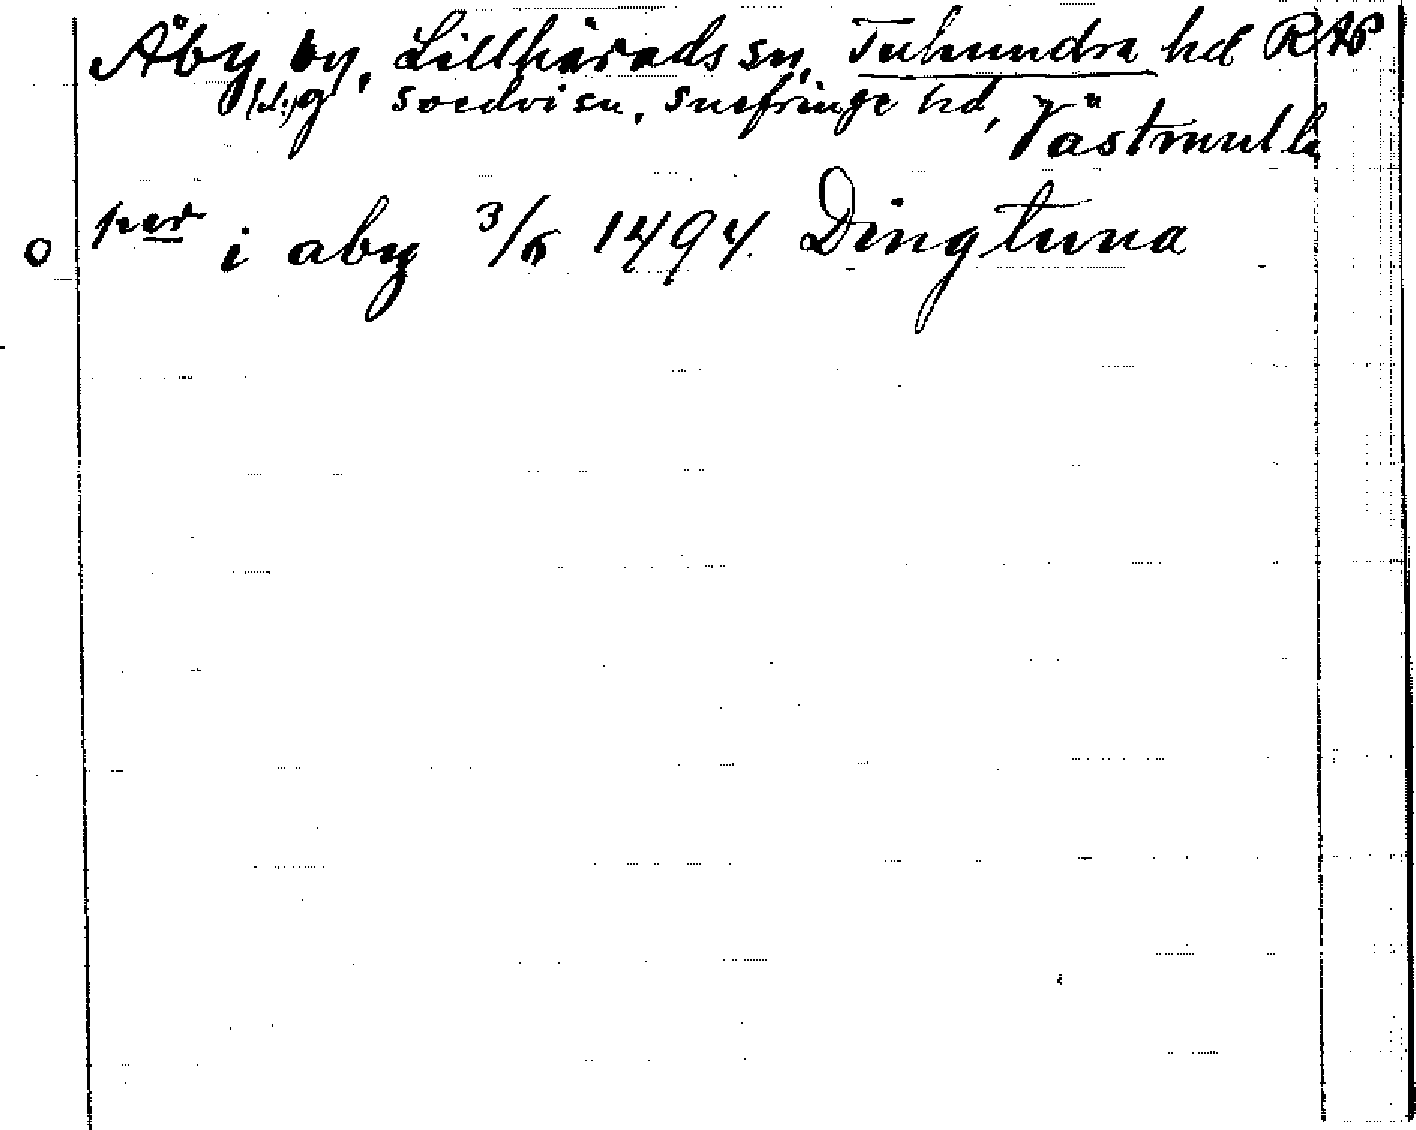 Åby by, Lillhärads sn, Tuhundra hd RAP
(d.) g Svedvi sn, Snefringe hd, Västmanl
o per i aby 3/6 1494 Dingtuna